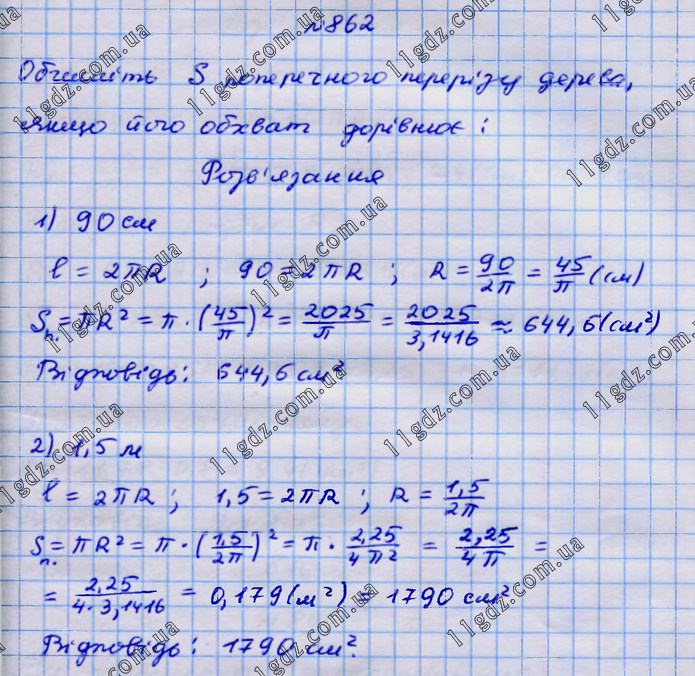 №862
Обчисліть S поперечного перерізу дерева,
якщо його обхват дорівнює:
Розв'язання
1) 90 см
l = 2πR ; 90 = 2πR ; R = 90/2π = 45/π (см)
Sп. = πR² = π · (45/π)² = 2025/π = 2025/3,1416 ≈ 644,6 (см²)
Відповідь: 644,6 см²
2) 1,5 м
l = 2πR ; 1,5 = 2πR ; R = 1,5/2π
Sп. = πR² = π · (1,5/2π)² = π · 2,25/4π² = 2,25/4π =
= 2,25/4·3,1416 = 0,179 (м²) = 1790 см²
Відповідь: 1790 см².
11gdz.com.ua